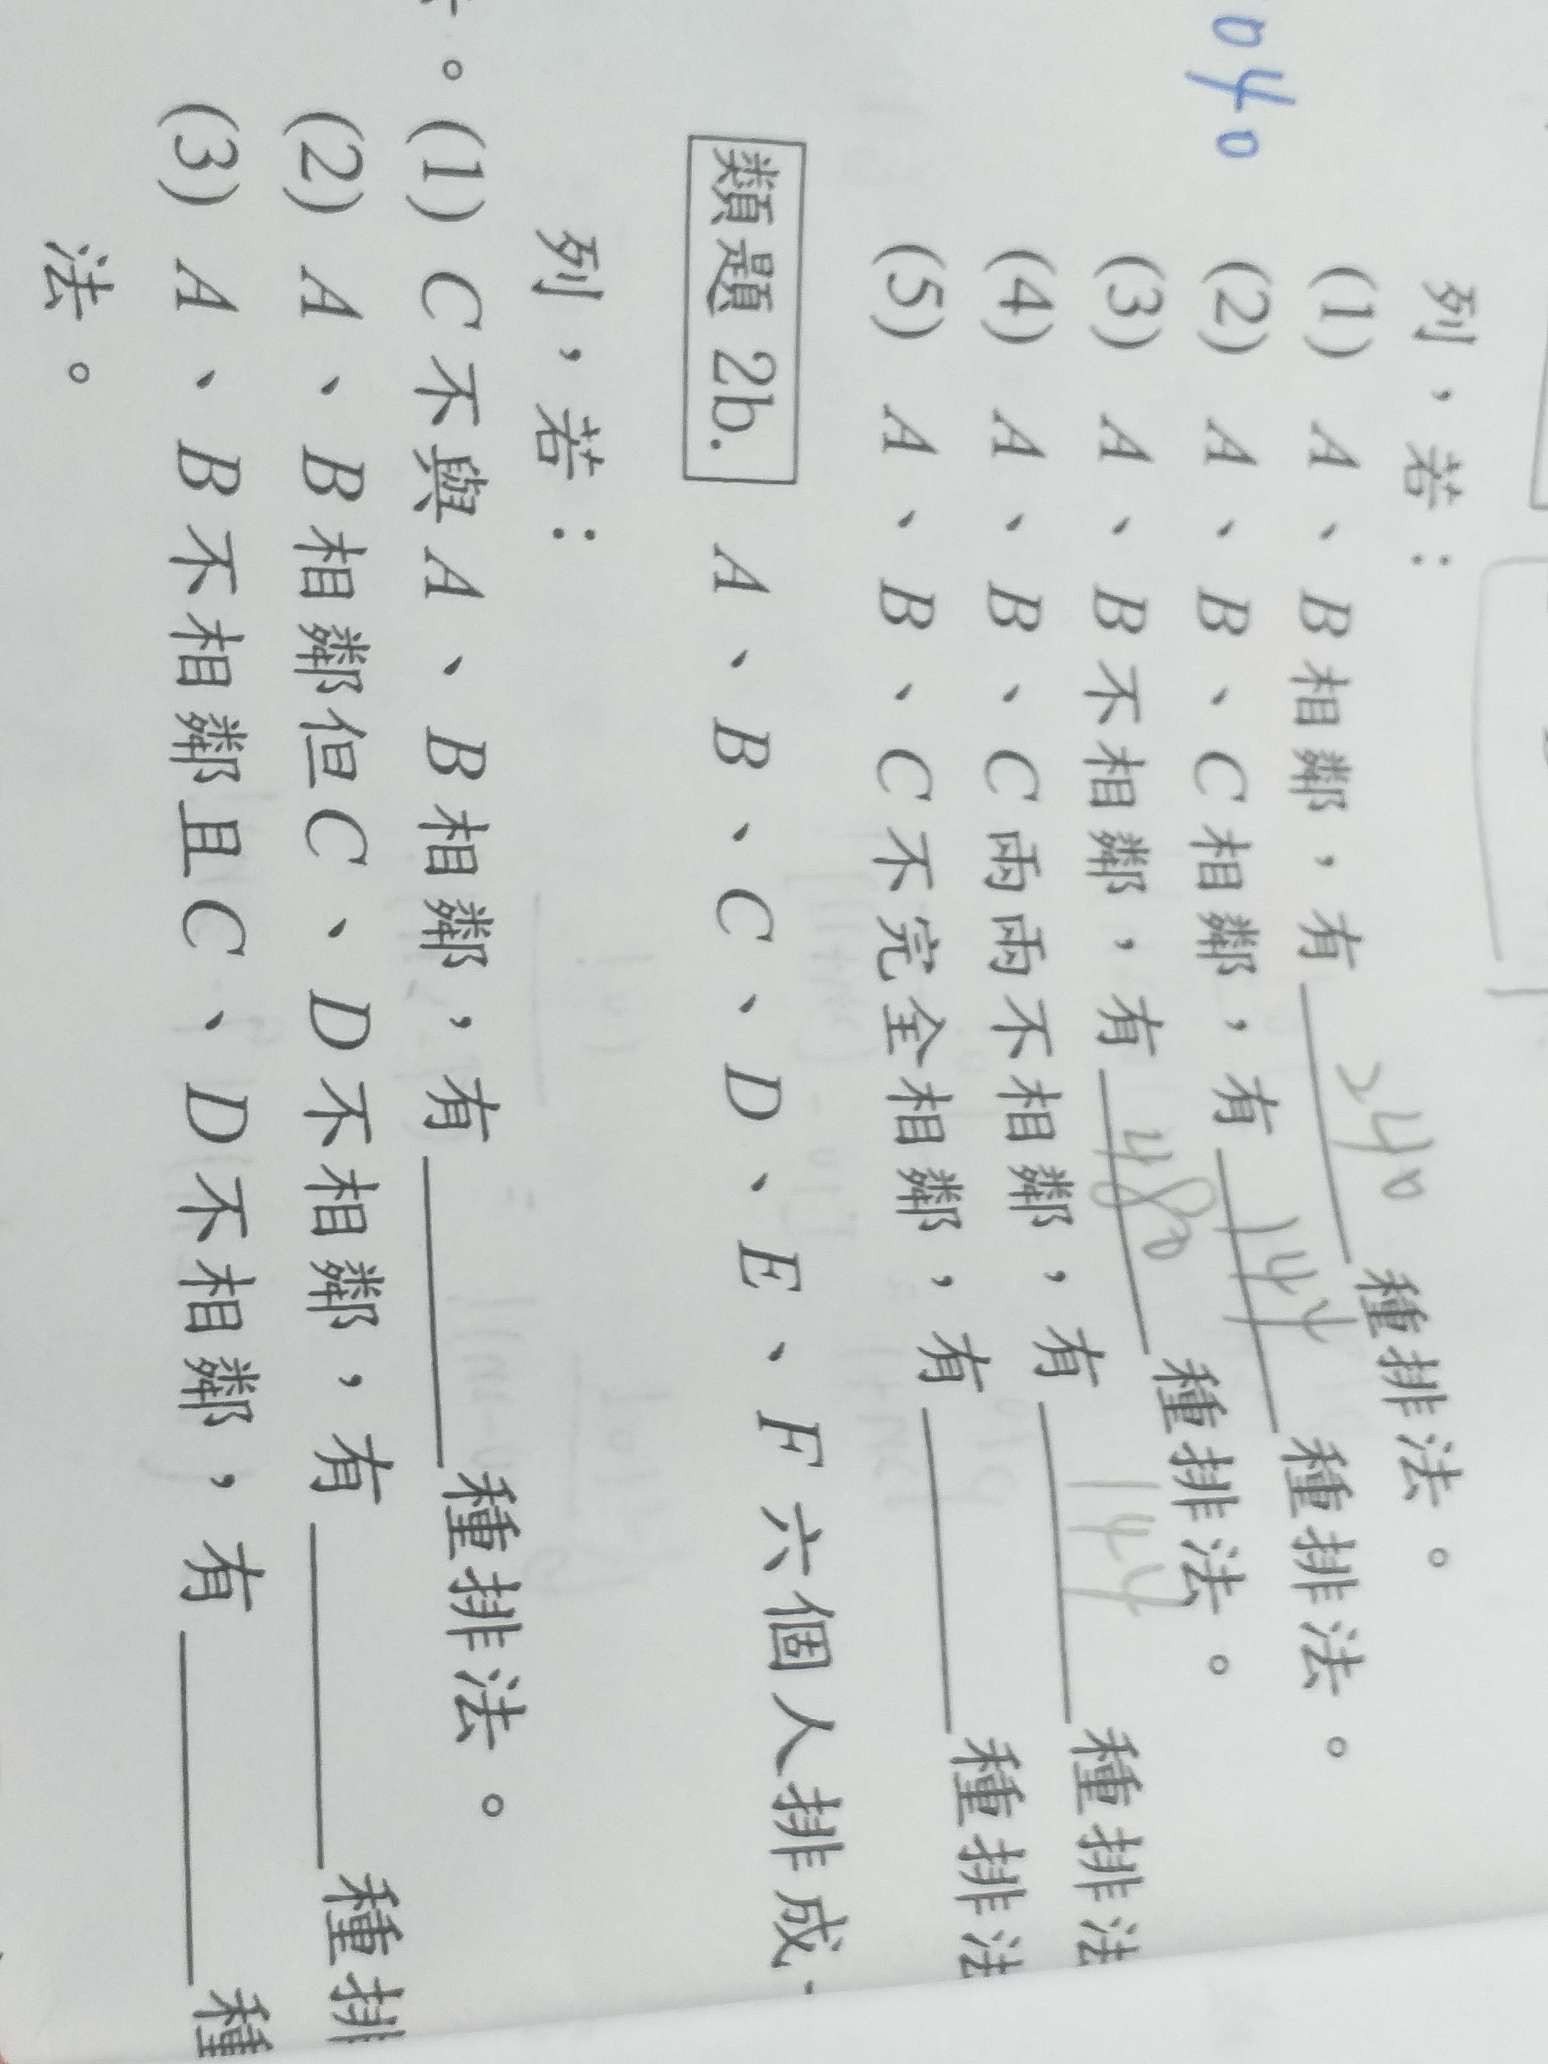 列，若：
(1) A、B相鄰，有 240 種排法。
(2) A、B、C相鄰，有 144 種排法。
(3) A、B不相鄰，有 480 種排法。
(4) A、B、C兩兩不相鄰，有 144 種排法
(5) A、B、C不完全相鄰，有 種排法
類題 2b. A、B、C、D、E、F 六個人排成
列，若：
(1) C不與A、B相鄰，有 種排法。
(2) A、B相鄰但C、D不相鄰，有 種排
(3) A、B不相鄰且C、D不相鄰，有 種
法。